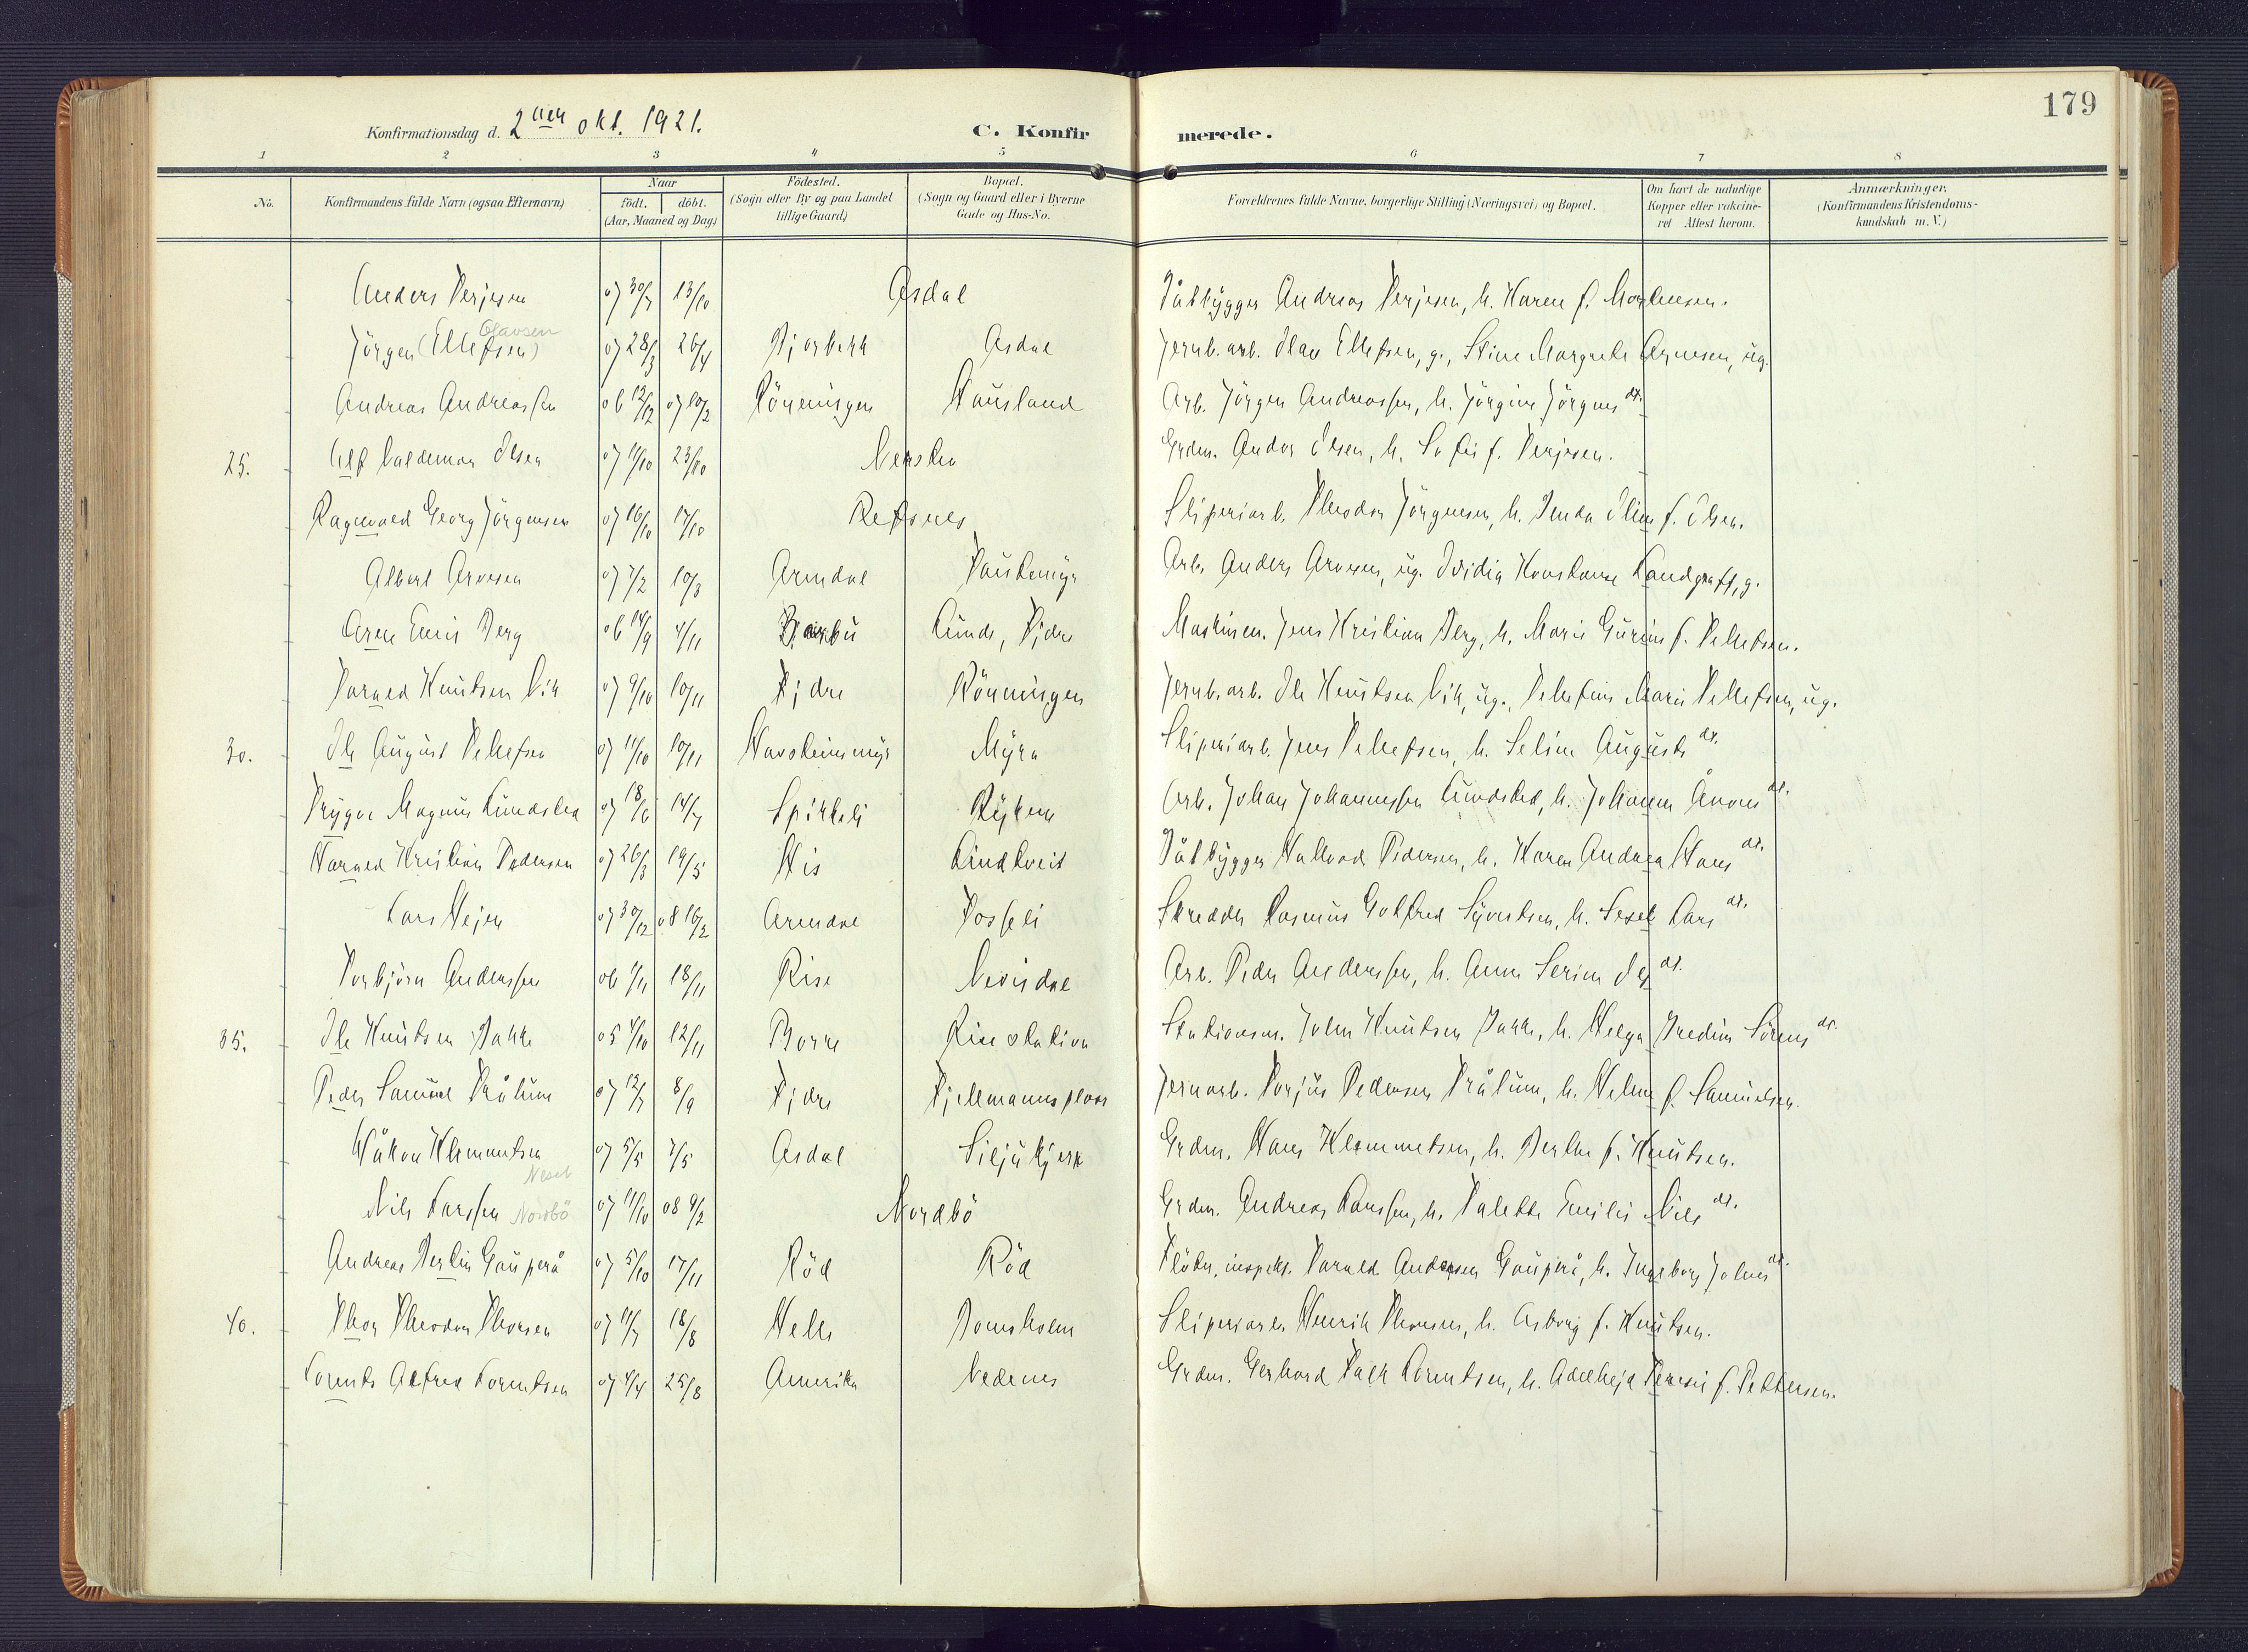 179
Konfirmationsdag d. 2den okt. 1921.
C. Konfirmerede.
1 2 3 4 5 6 7 8
No. Konfirmandens fulde Navn (ogsaa Efternavn) Naar født. døbt. (Aar, Maaned og Dag) Födested. (Sogn eller By og paa Landet tillige Gaard) Bopæl. (Sogn og Gaard eller i Byerne Gade og Hus-No. Forældrenes fulde Navne, borgerlige Stilling (Næringsvei) og Bopæl. Om havt de naturlige Kopper eller vakcineret Attest herom. Anmærkninger. (Konfirmandens Kristendomskundskab m. V.)
Anders Terjesen 07 30/7 13/10 Asdal Båtbygger Andreas Terjesen, h. Karen f. Mortensen.
Olavsen
Jörgen (Ellefsen) 07 28/3 26/4 Bjorbekk Asdal Jernb. arb. Olav Ellefsen, g., Stine Margrete Arnesen, ug.
Andreas Andreassen 06 12/12 07 10/2 Rönningen Hausland Arb. Jörgen Andreassen, h. Jörgine Jörgensdt.
25. Alf Valdemar Olsen 07 11/10 23/10 Nersten Grdm. Andor Olsen, h. Sofie f. Terjesen.
Ragnvald Georg Jörgensen 07 16/10 17/10 Refsnes Sliperiarb. Theodor Jörgensen, h. Inda Oline f. Olsen.
Albert Arnesen 07 7/2 10/3 Arendal Arb. Anders Arnesen, ug. Landgraff, g.
Aren Emil Berg 06 14/9 4/11 Barbu Lunde, Fjære Maskinm. Jens Kristian Berg, h. Marie Gurine f. Tellefsen.
Torvald Knutsen Vik 07 9/10 10/11 Fjære Rönningen Jernb. arb. Ole Knutsen Vik, ug., Tellefine Marie Tellefsen, ug.
30. Ole August Tellefsen 07 11/10 10/11 Havsteinmyr Myra Sliperiarb. Jens Tellefsen, h. Seline Augustsdt.
Trygve Magnus Lundsted 07 18/6 14/7 Spikkeli Ryken Arb. Johan Johannessen Lundsted, h. Johanne dt.
Harald Kristian Pedersen 07 26/3 19/5 His Lindtveit Båtbygger Hallvard Pedersen, h. Karen Andrea Hansdt.
Lars Hejen 07 30/12 08 16/2 Arendal Fosseli Skredder Rasmus Gotfred Syvertsen, h. Sesel Larsdt.
Torbjörn Anderssen 06 1/11 18/11 Rise Arb. Peder Anderssen, h. Anne Serine Olsdt.
35. Ole Knutsen Bakke 05 4/10 12/11 Borre Rise station Stationsm. John Knutsen Bakke, h. Helga Sörensdt.
Peder Samuel Trålum 07 12/7 8/9 Fjære Fjellmannsplass Jernarb. Torjus Pedersen Trålum, h. Helene f. Samuelsen.
Håkon Klemmetsen 07 5/5 7/5 Asdal Siljukjerr Grdm. Hans Klemmetsen, h. Berthe f. Knutsen.
Nesset
Nils Larssen Nordbö 07 11/10 08 9/2 Nordbö Grdm. Andreas Larssen, h. Talette Emilie Nilsdt.
Andreas Berlin Gauperå 07 5/10 17/11 Röd Röd Flötn. inspekt. Torvald Andersen Gauperå, h. Ingeborg Johnsdt.
40. Thor Theodor Thorsen 07 11/7 18/8 Helle Bomsholm Sliperiarb. Henrik Thorsen, h. Asborg f. Knutsen.
Lorents Alfred Lorentsen 07 4/4 25/8 Amerika Nedenes Grdm. Gerhard Falk Lorentsen, h. Adelheid Teresie f. Pettersen.